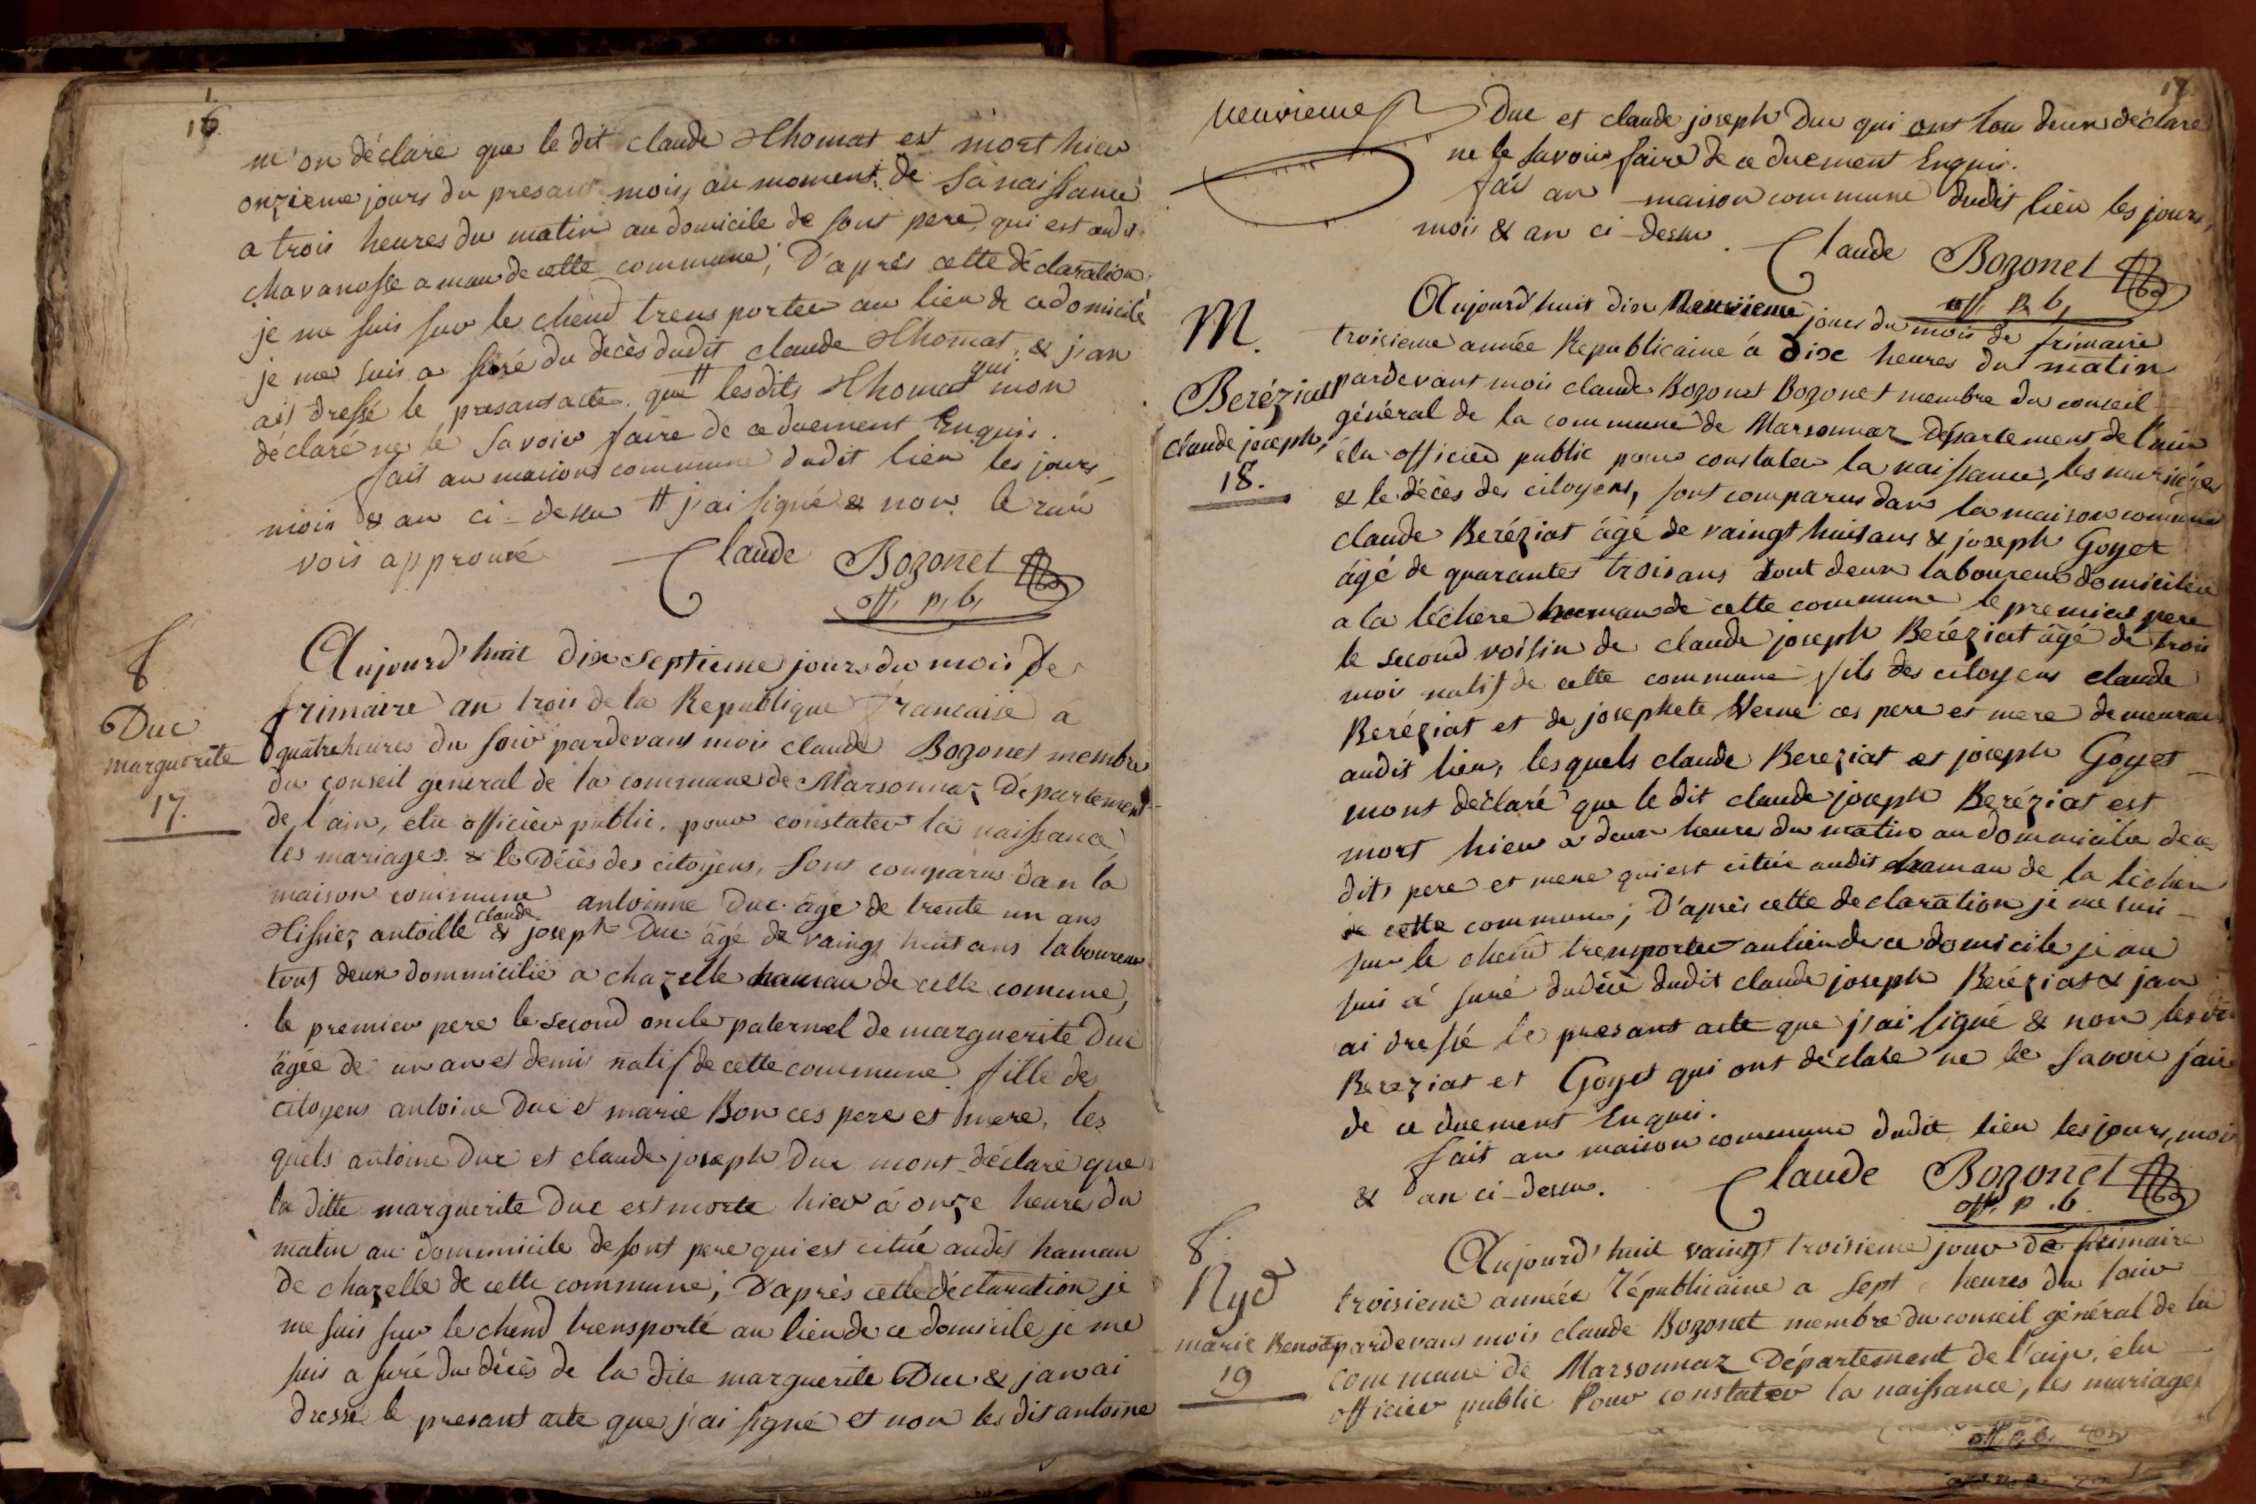 16
m'on déclaré que le dit claude Thomat est mort hier
onzieme jours du presant mois au moment de sa naissance
a trois heures du matin au domicile de sont pere, qui est audit
chavanosse amau de cette commune, D'après cette déclaration,
je me suis sur le chend trensporter au lieu de ce domicile
je me suis a suré du décès dudit claude Thomat & j'an
ait dressé le presant acte que # lesdits Thomat qui mon
déclaré ne le savoir faire de ce duement Enquis.
fait an maison commune dudit lieu les jours
mois & an ci-dessu # j'ai signé & non. le ran
vois approuvé Claude Bozonet
off. p. b.
F.
Duc
marguerite
17.
Aujourd'huit dix septieme jours du mois de
frimaire an trois de la Republique francaise a
quatre heures du soir pardevant mois claude Bozonet membre
du conseil general de la commune de Marsonnaz Département
de l'ain, elu officier public, pour constater la naissance
les mariages & le Décès des citoyens, sont comparu dan la
maison commune antoinne Duc âgé de trente un ans
Tissiez antoille & claude joseph Duc âgé de vaingt huit ans laboureur
tout deux dommicilié a chazelle hamau de cette comune,
le premier pere le second oncle paternel de marguerite Duc
âgée de un an et demi natif de cette commune fille des
citoyens antoine Duc et marie Bon ces pere et mere, les
quels antoine Duc et claude joseph Duc mont déclaré que
la ditte marguerite Duc est morte hier à onze heure du
matin au dommicile de sont pere qui est citué audit hamau
de chazelle de cette commune; D'après cette déclaration je
me suis sur le chend trensporté au lieu de ce domicile je me
suis a suré du décès de la dite marguerite Duc & jan ai
dresse le presant acte que j'ai signé et non les dit antoine
17
neuvieme
Duc et claude joseph Duc qui ont tou deux déclaré
ne le savoir faire de ce duement Enquis.
fai an maison commune dudit lieu les jours,
mois & an ci-dessu. Claude Bozonet
off. p. b.
M.
Beréziat
claude joseph,
18.
Aujourd'huit dix Neuvieme jours du mois de frimaire
troisieme année Republicaine à Dixe heures du matin
pardevant mois claude Bozonet Bozonet membre du conseil
général de la commune de Marsonnaz Département de l'ain
élu officier public pour constater la naissance, les mariages
& le décès des citoyens, sont comparus dans la maison commune
claude Beréziat âgé de vaingt huit ans & joseph Goyet
âgé de quarante trois ans tout deux laboureur domicilié
a la léchere hamau de cette commune le premier pere
le second voisin de claude joseph Beréziat âgé de trois
mois natif de cette commune fils des citoyens claude
Beréziat et de josephete Verne ces pere et mere demeurant
audit lieu, lesquels claude Bereziat et joseph Goyet
mont déclaré que le dit claude joseph Beréziat est
mort hier a deux heure du matin au dommicile de ces
dits pere et mere qui est citué audit hamau de la léchere
de cette commune; D'après cette declaration je me suis
sur le chend trensporter au lieu de ce domicile je me
suis à suré dudécè dudit claude joseph Beréziat & jan
ai dressé le presant acte que j'ai signé & non lesdit
Bereziat et Goyet qui ont déclaré ne le savoir faire
de ce duement Enquis.
fait an maison commune dudit lieu les jours, mois
& an ci-dessu. Claude Bozonet
off. p. b.
F.
Nyd
marie Benoite
19
Aujourd'huit vaingt troisieme jour de frimaire
troisieme année républicaine a sept heures du soir
pardevant mois claude Bozonet membre du conseil général de la
commune de Marsonnaz Département de l'ain, élu
officier public Pour constater la naissance, les mariages